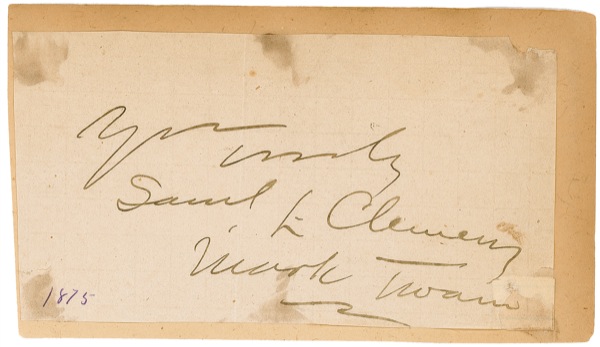 Yrs truly
Saml L Clemens
Mark Twain
1875